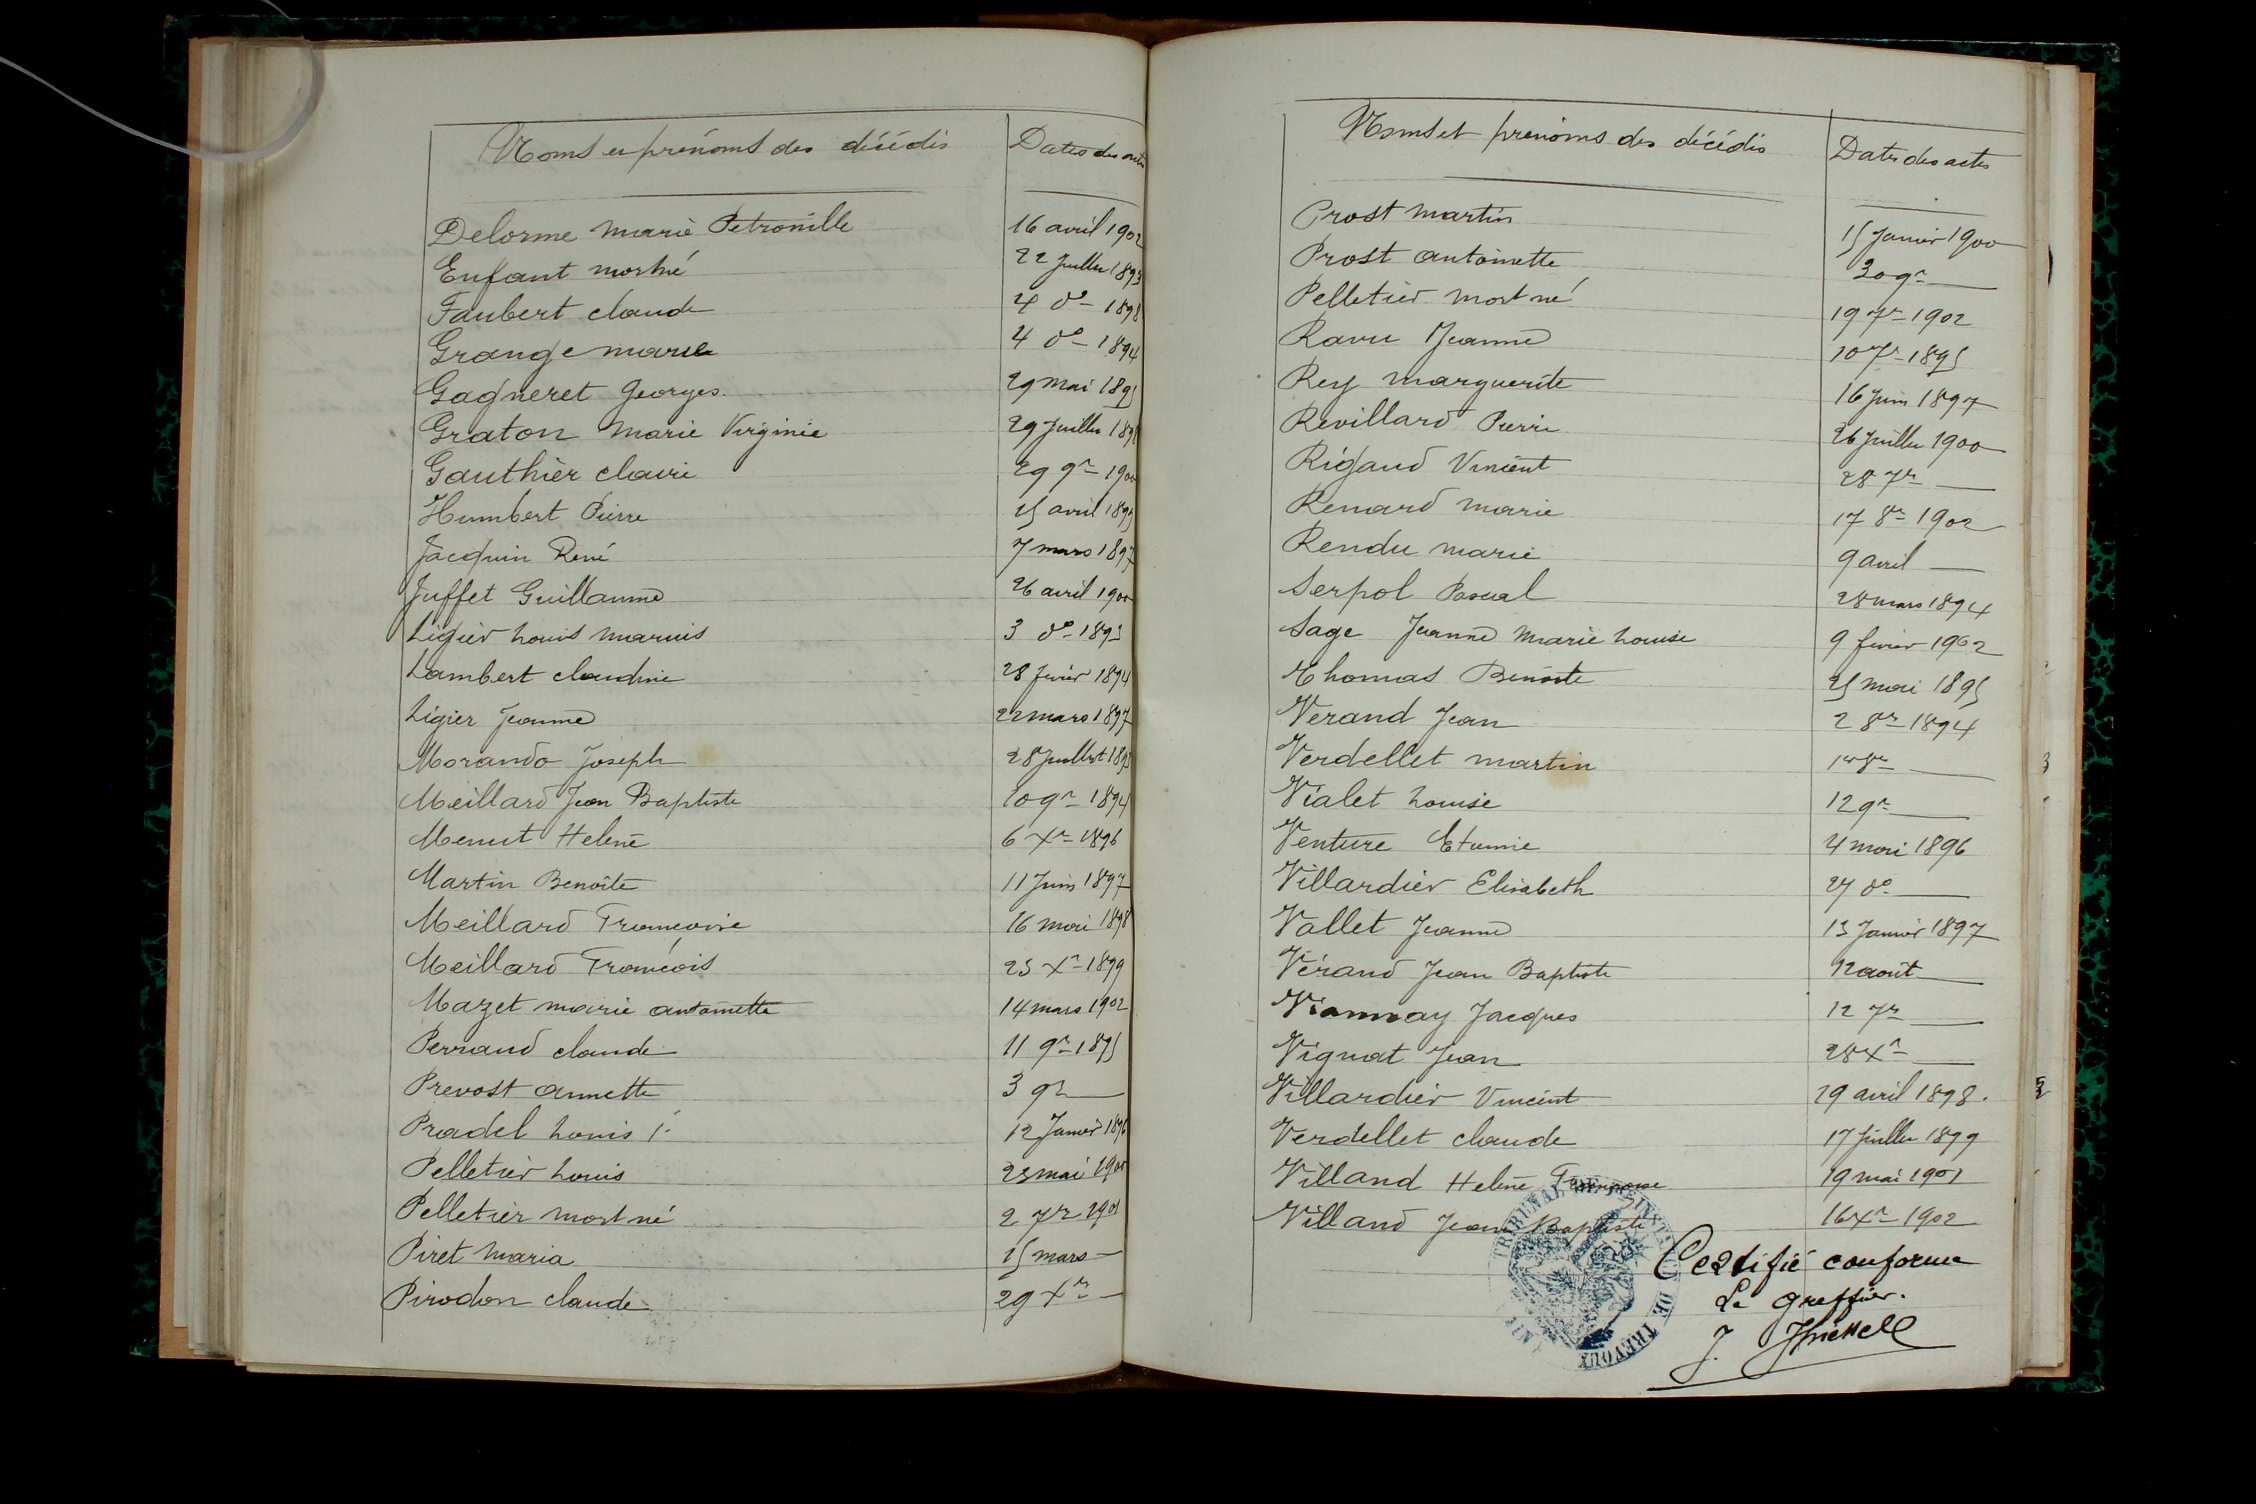 Noms et prénoms des décédés
Dates des actes
Delorme Marie Petronille 16 avril 1902
Enfant mort né 22 Juillet 1893
Faubert Claude 4 do 1898
Grange Marie 4 do 1894
Gagneret Georges 29 mai 1895
Graton Marie Virginie 29 Juillet
Gauthier Claire 29 9re 1900
Humbert Pierre 15 avril
Jacquin René 7 mars 1897
Juffet Guillaume 26 avril 1900
Ligier Louis Marius 3 do 1893
Lambert Claudine 28 février 1894
Ligier Jeanne 22 mars 1897
Morando Joseph 28 Juillet
Meillard Jean Baptiste 10 9re 1894
Menut Helene 6 Xre 1896
Martin Benoite 11 Juin 1897
Meillard Francoise 16 mai 1898
Meillard François 25 Xre 1899
Mazet Marie Antoinette 14 mars 1902
Perraud Claude 11 9re 1895
Prevost Annette 3 9re —
Pradel Louis 12 Janvier 1896
Pelletier Louis 23 mai
Pelletier mort né 2 7re 1901
Piret Maria 15 mars —
Pirodon Claude 29 Xre —
Noms et prénoms des décédés
Dates des actes
Prost Martin 15 Janvier 1900
Prost Antoinette 30 9re —
Pelletier mort né 19 7re 1902
Ravu Jeanne 10 7re 1895
Rey Marguerite 16 Juin 1897
Revillard Pierre 26 Juillet 1900
Rigaud Vincent 28 7re —
Renard Marie 17 8re 1902
Rendu Marie 9 avril —
Serpol Pascal 28 mars 1894
Sage Jeanne Marie Louise 9 février 1902
Thomas Benoite 25 mai 1895
Verand Jean 2 8re 1894
Verdellet Martin 1er 8re —
Vialet Louise 12 9re —
Venture Etienne 4 mai 1896
Villardier Elisabeth 27 do —
Vallet Jeanne 13 Janvier 1897
Vérand Jean Baptiste 12 août —
Viannay Jacques 12 7re —
Vignat Jean 28 Xre —
Villardier Vincent 29 avril 1898.
Verdellet Claude 17 Juillet 1899
Villand Helene Françoise 19 mai 1901
Villand Jean Baptiste 16 Xre 1902
Certifié conforme
Le greffier.
TRIBUNAL DE TREVOUX